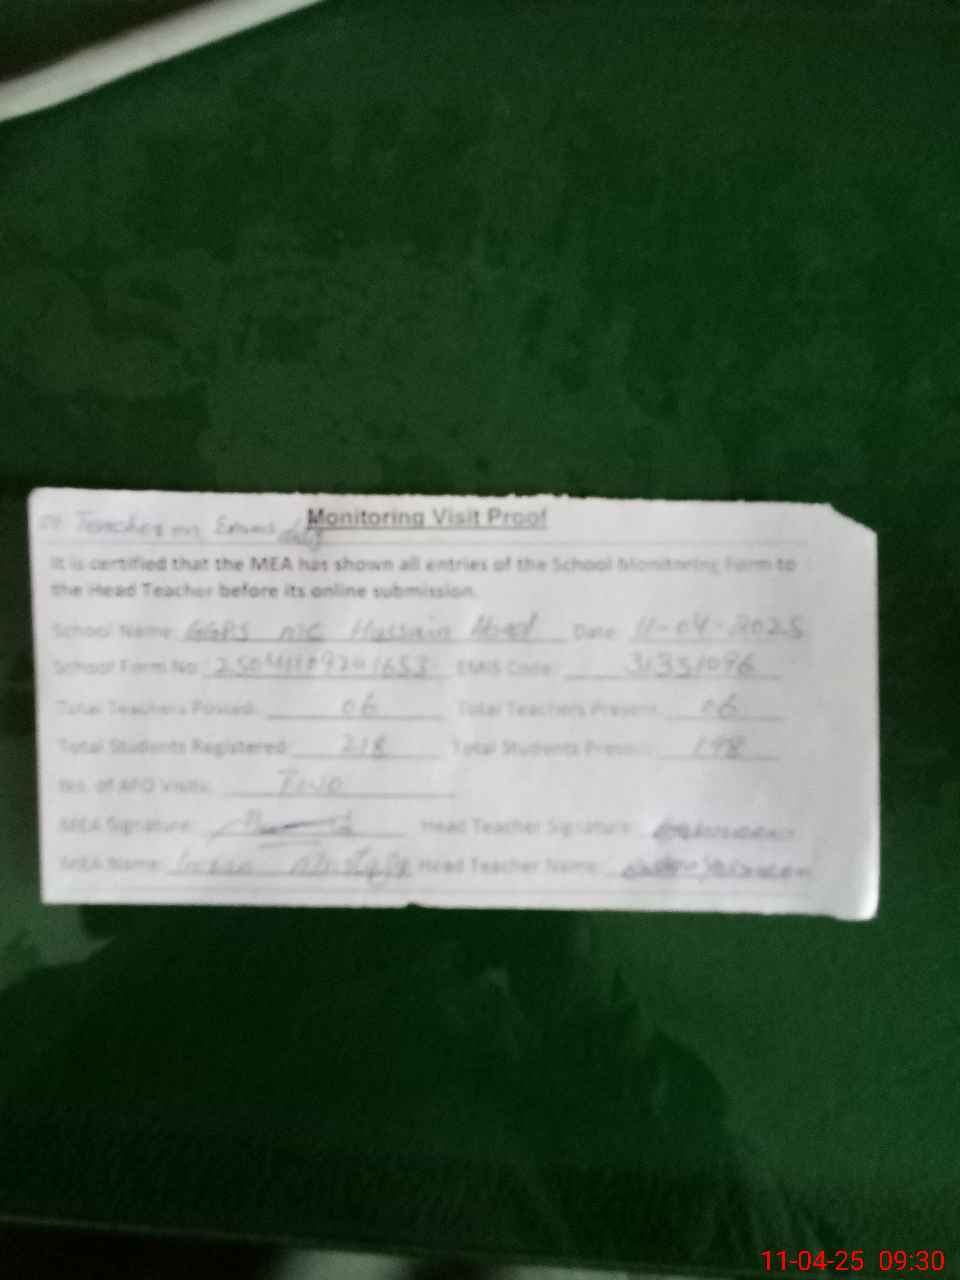 Teacher on Exam duty
Monitoring Visit Proof
It is certified that the MEA has shown all entries of the School Monitoring Form to
the Head Teacher before its online submission.
School Name: GGPS MC Hussain Abad Date: 11-04-2025
School Form No: EMIS Code: 31351096
Total Teachers Posted: 06 Total Teachers Present: 06
Total Students Registered: 218 Total Students Present: 198
No. of AEO Visits: Two
MEA Signature: Head Teacher Signature:
MEA Name: Head Teacher Name:
11-04-25 09:30